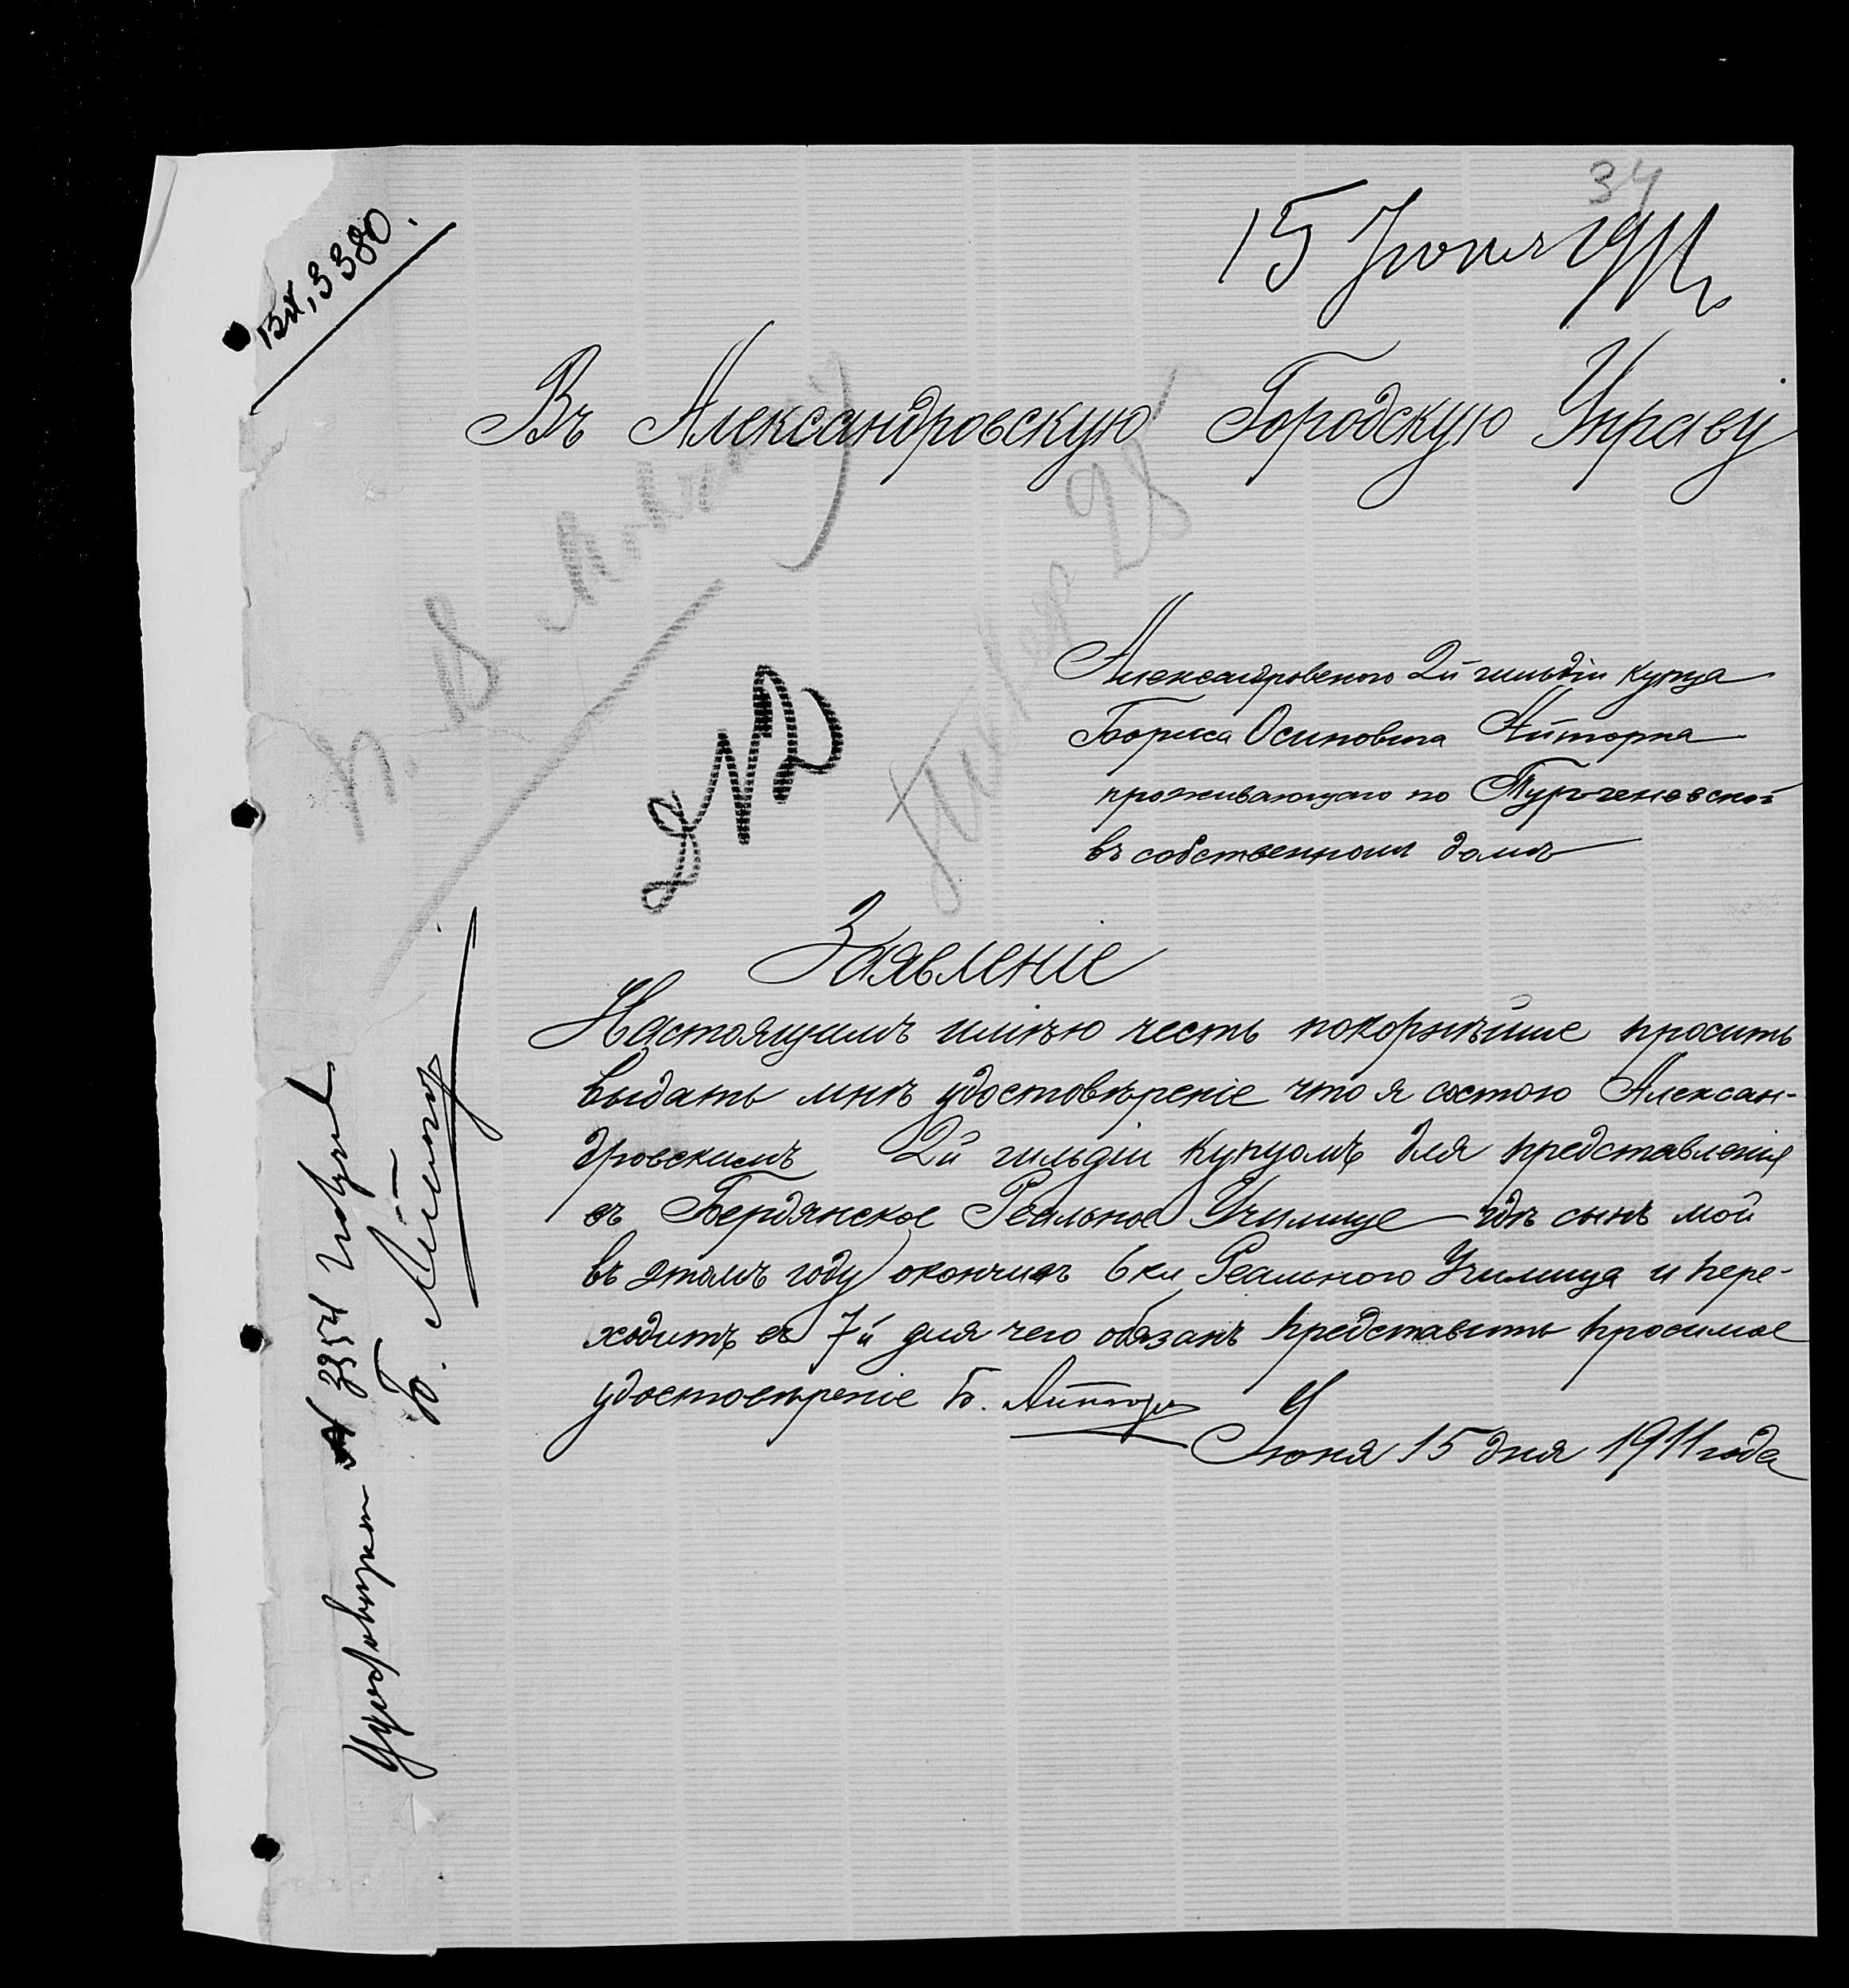 34
15 Іюня 1911 г
Вх. 3380.
Въ Александровскую Городскую Управу
Александровскаго 2й гильдіи купца
Бориса Осиповича Айторна
проживающаго по Тургеневской
въ собственномъ домѣ
Заявленіе
Настоящимъ имѣю честь покорнѣйше просить
выдать мнѣ удостовѣреніе что я состою Алексан-
дровскимъ 2й гильдіи купцомъ для представленія
въ Бердянское Реальное Училище гдѣ сынъ мой
въ этомъ году окончилъ 6 кл Реального Училища и пере-
ходитъ въ 7й для чего обязанъ представить просимое
удостовѣреніе Б. Айторн
Июня 15 дня 1911 года
Удостовѣрен № 3354 получил
Б.